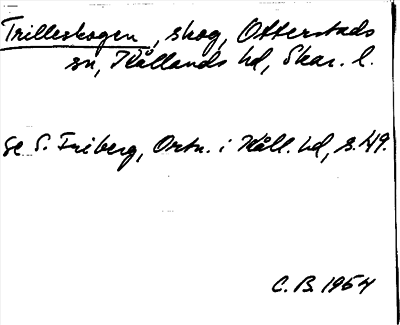 Trilleskogen, skog, Otterstads
sn, Kållands hd, Skar. l.
se S. Friberg, Ortn. i Kåll. hd, s. 49.
C. B. 1954